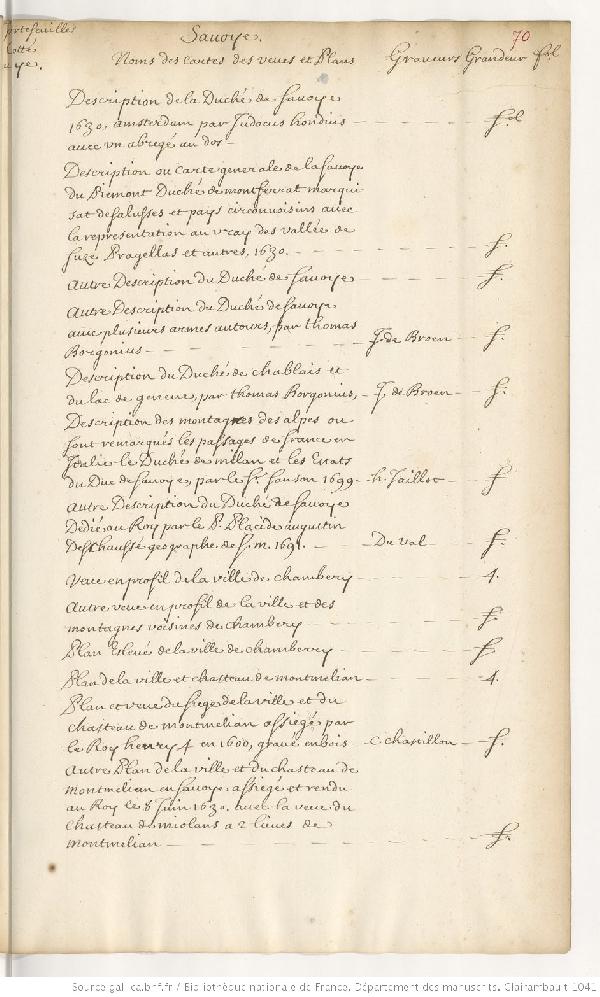 portefeuilles
Cotté
Savoye.
70
Noms des cartes des veues et Plans Graveurs Grandeur fol
Description de la Duché de Savoye
1630. amsterdam par Judocus hondius fol
avec un abregé au dos
Description ou Carte generale de la Savoye
du Piemont Duché de montferrat marqui
sat de salusses et pays circonvoisins avec
la representation au vray des vallée de
suze Pragellas et autres, 1630. f.
Autre Description du Duché de Savoye f.
Autre Description du Duché de Savoye
avec plusieurs armes autours, par thomas
Borgonius J. de Broen f.
Description du Duché de chablais et
du lac de geneve, par thomas Borgonius, J. de Broen f.
Description des montagnes des alpes ou
sont remarqués les passages de france en
Italie le Duché de milan et les Estats
du Duc de Savoye, par le Sr. Sanson 1699 h. Jaillot f
Autre Description du Duché de Savoye
Dedié au Roy par le P. Placide augustin
Deschaussé geographe de S. m. 1691. Du val f.
Veue en profil de la ville de chambery 4.
Autre veue en profil de la ville et des
montagnes voisines de chambery f.
Plan Eslevé de la ville de chamberry f.
Plan de la ville et chasteau de montmelian 4.
Plan et veue du siege de la ville et du
chasteau de montmelian assiegé par
le Roy henry 4 en 1600, gravé en bois C. chatillon f.
Autre Plan de la ville et du chasteau de
montmelian en Savoye assiegé et rendu
au Roy le 8 Juin 1630. avec la veue du
chasteau de miolans a 2 lieues de
montmelian f.
Source gallica.bnf.fr / Bibliothèque nationale de France. Département des manuscrits. Clairambault 1041